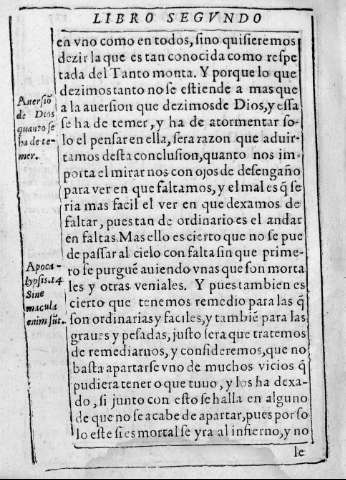 LIBRO SEGVNDO
en vno como en todos, sino quisieremos
dezir la que es tan conocida como respe
tada del Tanto monta. Y porque lo que
dezimos tanto no se estiende a mas que
a la auersion que dezimos de Dios, y essa
se ha de temer, y ha de atormentar so-
lo el pensar en ella, sera razon que aduir-
tamos desta conclusion, quanto nos im-
porta el mirar nos con ojos de desengaño
para ver en que faltamos, y el mal es q̃ se
ria mas facil el ver en que dexamos de
faltar, pues tan de ordinario es el andar
en faltas. Mas ello es cierto que no se pue
de passar al cielo con falta sin que prime-
ro se purgue auiendo vnas que son morta
les y otras veniales. Y pues tambien es
cierto que tenemos remedio para las q̃
son ordinarias y faciles, y tambiẽ para las
graues y pesadas, justo sera que tratemos
de remediarnos, y consideremos, que no
basta apartarse vno de muchos vicios q̃
pudiera tener o que tuuo, y los ha dexa-
do, si junto con esto se halla en alguno
de que no se acabe de apartar, pues por so
lo este si es mortal se yra al infierno, y no
le
Auersiõ
de Dios
quanto se
ha de te-
mer.
Apoca-
lypsis. 14
Sine
macula
enim sũt.